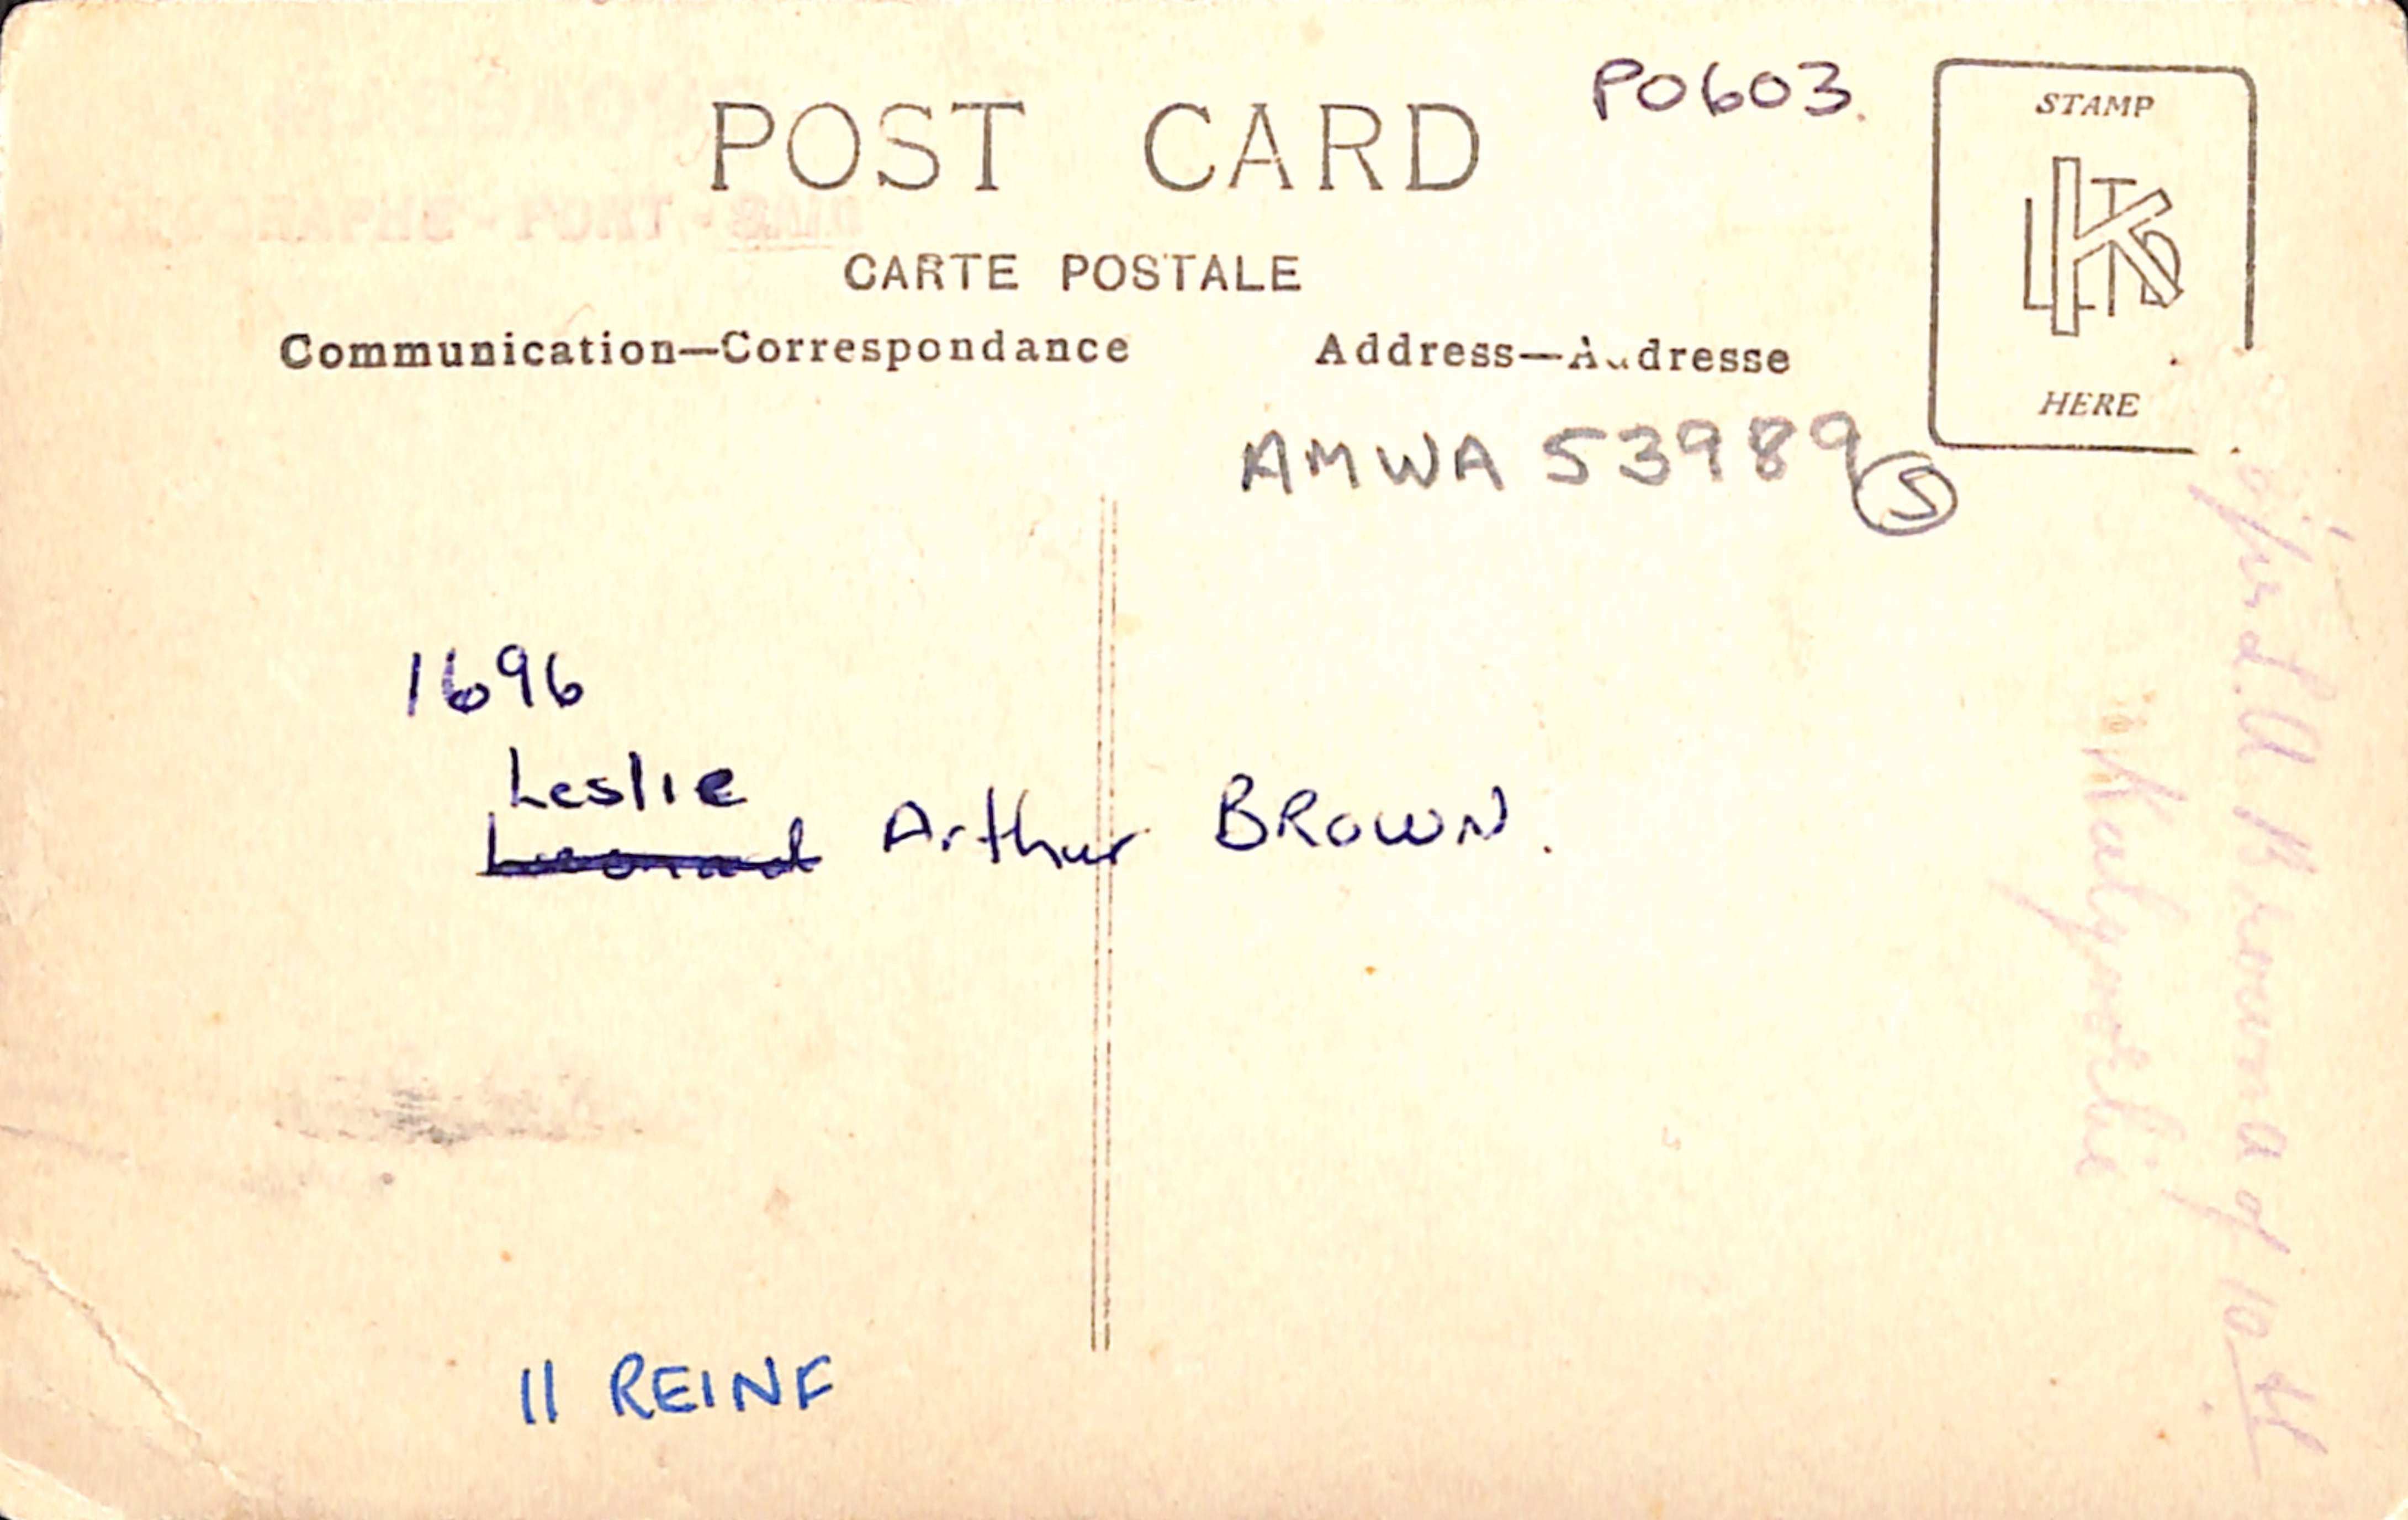 PO603.
POST CARD
STAMP
PHOTOGRAPHS - PORT - SAID
CARTE POSTALE
K LTD
Communication—Correspondance
Address—Addresse
HERE
AMWA 53989 S
1696
Leslie
Leonard Arthur BROWN.
11 REINF
L. A. Brown of 10th
Kalgoorlie